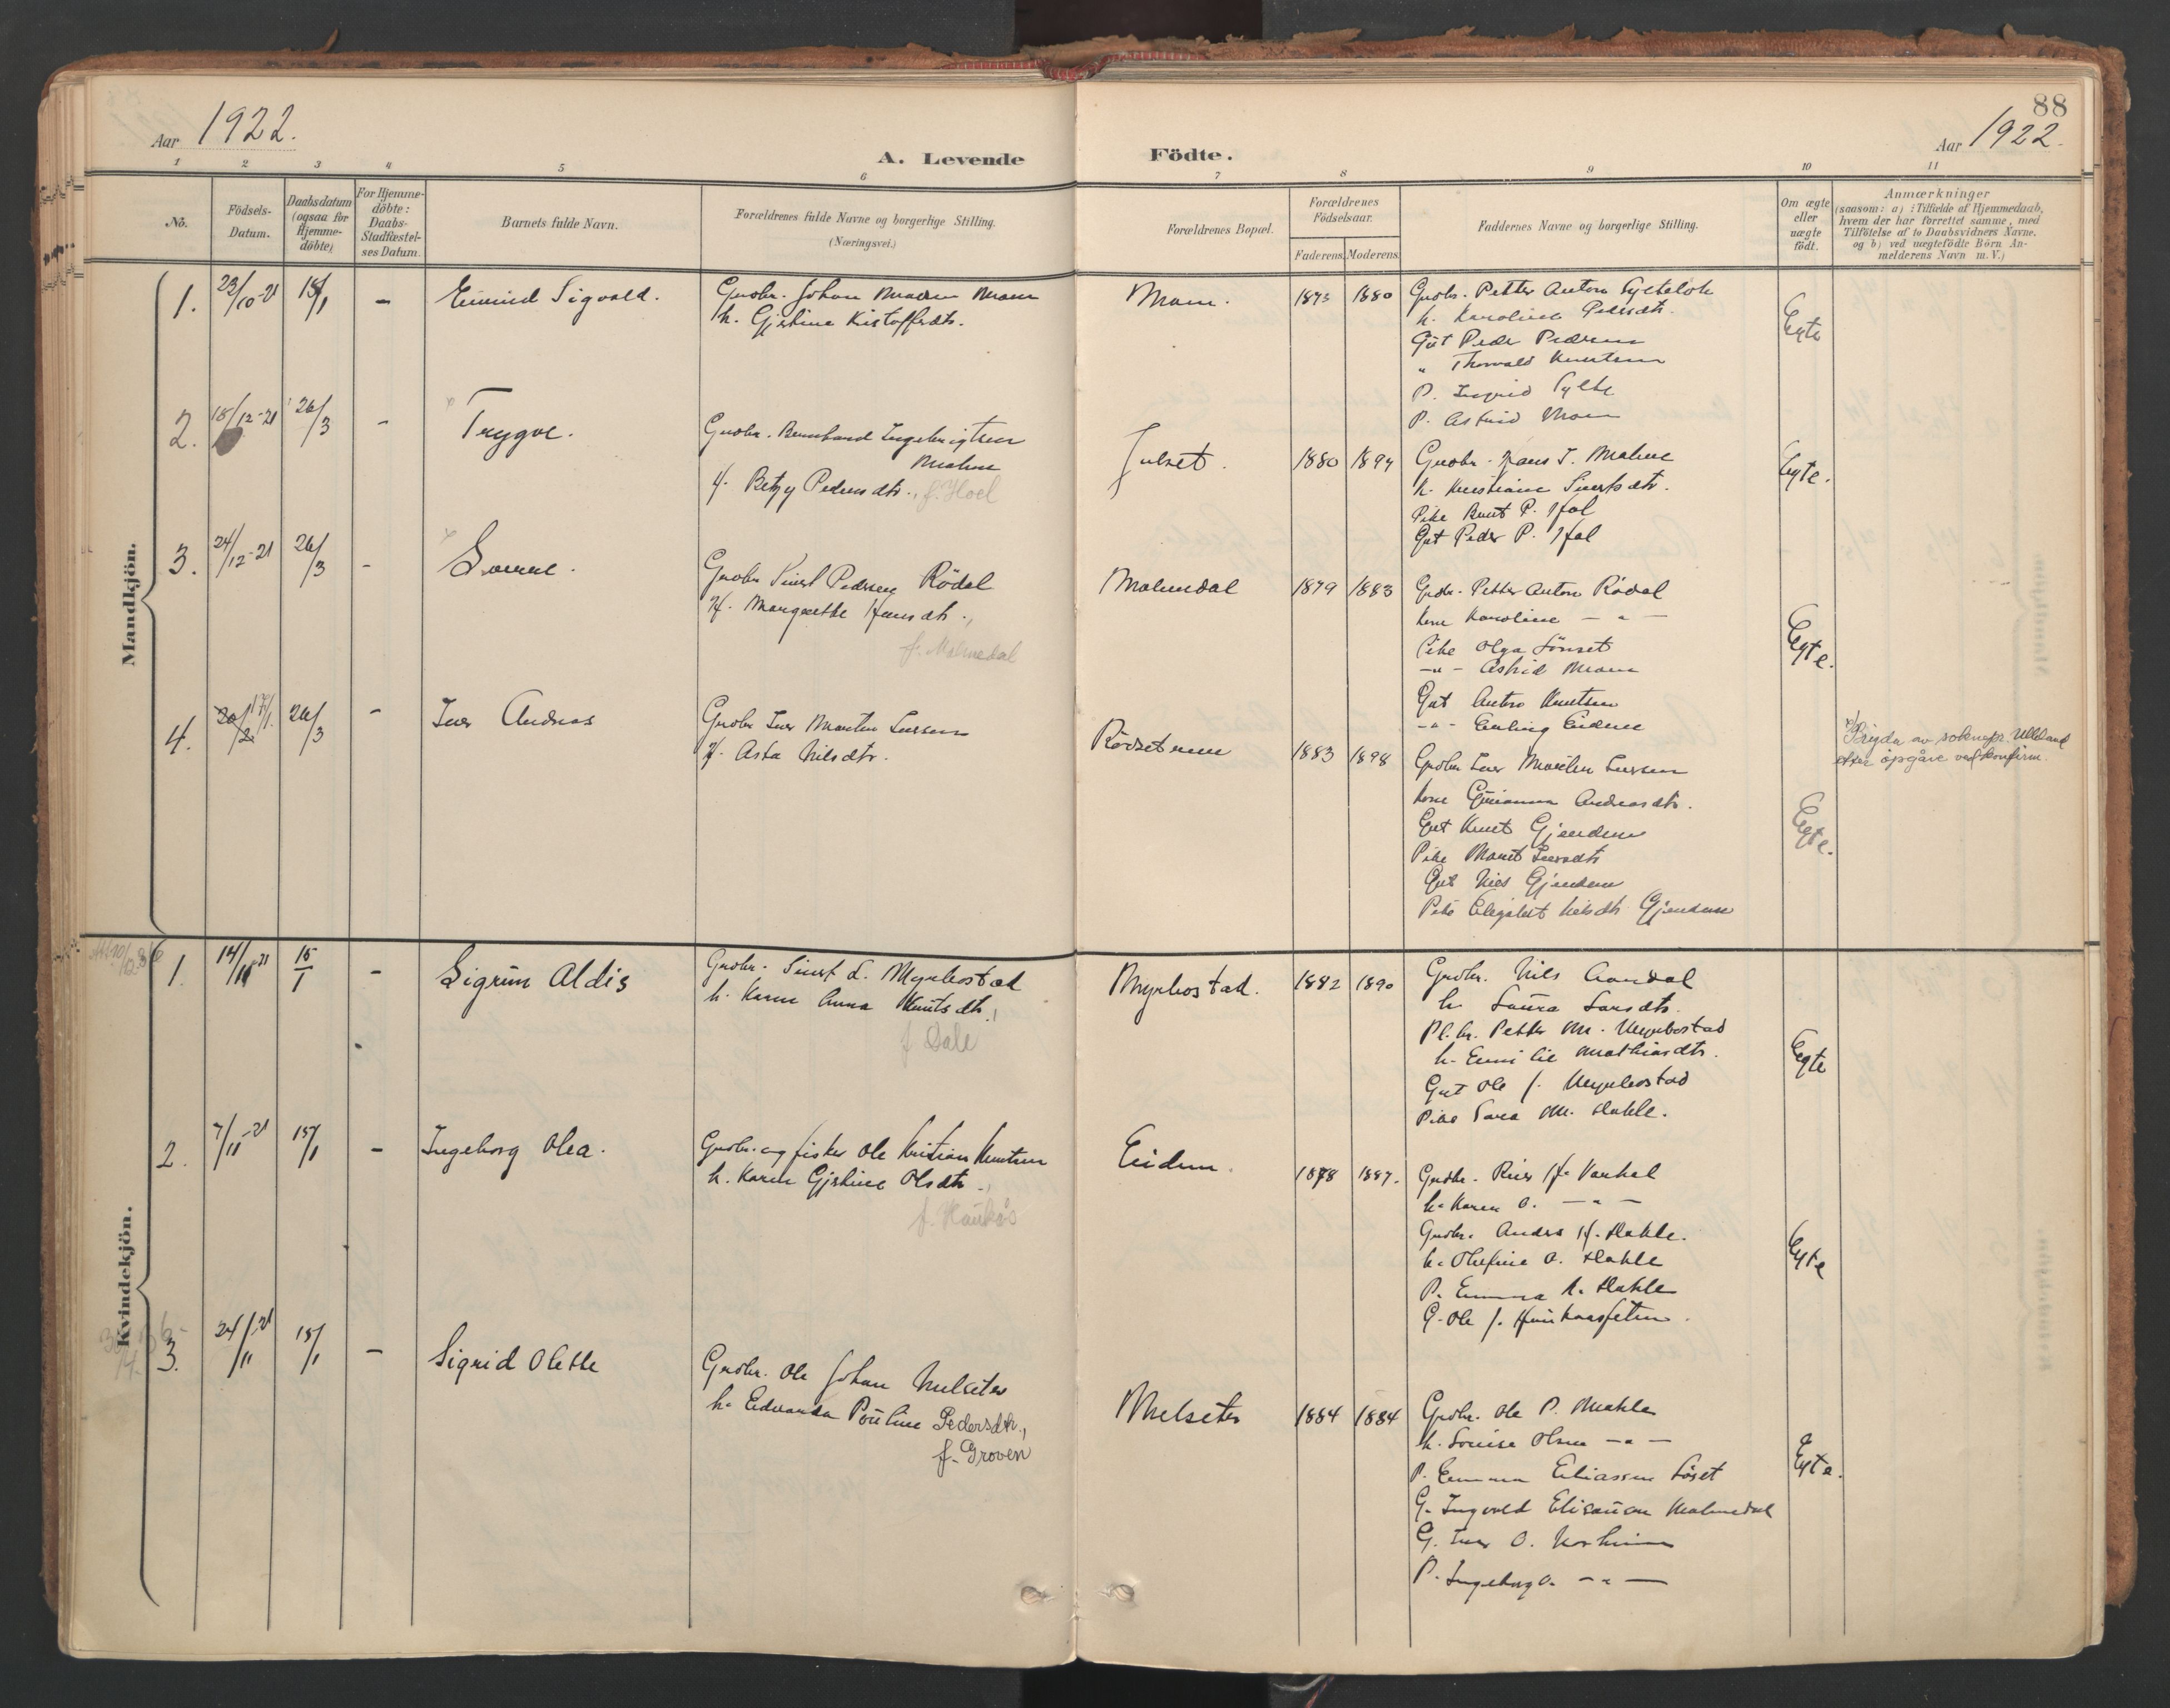 88
Aar 1922.
Aar 1922.
A. Levende
Födte.
1 2 3 4 5 6 7 8 9 10 11
No.
Födsels-
Datum.
Daabsdatum
(ogsaa for
Hjemme-
döbte)
For Hjemme-
döbte:
Daabs-
Stadfæstel-
ses Datum.
Barnets fulde Navn.
Forældrenes fulde Navne og borgerlige Stilling.
(Næringsvei.)
Forældrenes Bopæl.
Forældrenes
Födselsaar.
Faderens. Moderens.
Faddernes Navne og borgerlige Stilling.
Om ægte
eller
uægte
födt.
Anmærkninger
(saasom: a) i Tilfælde af Hjemmedaab,
hvem der har forrettet samme, med
Tilföielse af to Daabsvidners Navne.
og b) ved uægtefödte Börn An-
melderens Navn m. V.)
Mandkjön.
1. 23/10-21 15/1 - Sigvald.
Gbr. Johan
k. Gjertine Kristoffersdtr.
1880
Gbr. Petter Anton
k. Karoline Pedersdtr.
Gut Peder Pedersen
" Thorvald Knutsen
P. Ingrid Sylte
P. Astrid
Egte
2. 18/12-21 26/3 - Trygve.
Gbr. Bernhard Ingebrigtsen
Malme
H. Betzy Pedersdtr., f. Hoel
Julset.
1880 1894
Gbr. Hans J. Malme
k. Kristiane Sivertsdtr.
Pike P. Hoel
Gut Peder P. Hoel
Egte.
3. 24/12-21 26/3 - Sverre.
Gbr. Sivert Pedersen Rödal
H. Margrethe Hansdtr.,
f. Malmedal
Malmedal
1879 1883
Gbr. Petter Anton Rödal
kone Karoline — " —
Pike Olga
—"— Astrid
Gut Anton Knutsen
—"— Eidem
Egte.
4. 20/2 17/1. 26/3 - Iver Andreas
Gbr. Iver Martin Iversen
H. Asta Nilsdtr.
1883 1898
Gbr. Iver Martin Iversen
kone Andreasdtr.
Gut Knut Gjendem
Pike Marit Iversdtr
Gut Nils Gjendem
Pike Nilsdtr Gjendem
Egte.
x) Tilføyde av soknepr. Ulleland
etter opgåve ved konfirm.
Kvindekjön.
1. 14/11 21 15/1 - Sigrun Aldis
Gbr. Sivert L. Myrbostad
k. Karen Anna Knutsdtr.,
f. Dale
Myrbostad.
1882 1890
Gbr. Nils Aandal
k. Laura Larsdtr.
Pl.br. Petter M. Myrbostad
k. Emilie Mathiasdtr.
Gut Ole J. Myrbostad
Pike Sara M. Hahle.
Egte
2. 7/11-21 15/1 - Ingeborg Olea.
Gbr. og fisker Ole Kristian Knutsen
k. Karen Gjertine Olsdtr.,
f. Haukås
Eidem.
1878 1887.
Gbr. H. Varhol
k. Karen O. — " —
Gbr. Anders H. Hahle.
k. Olufine O. Hahle
P. Emma A. Hahle
G. Ole J.
Egte
3. 24/11-21 15/1 - Sigrid Olette
Gbr. Ole Johan Melseter
k. Edvarda Pouline Pedersdtr.,
f. Groven
Melseter
1884 1884
Gbr. Ole P.
k. Louise Olsen — " —
P. Emma Eliassen
G. Ingvald Malmedal
G. Iver O.
P. Ingeborg O. — " —
Egte.